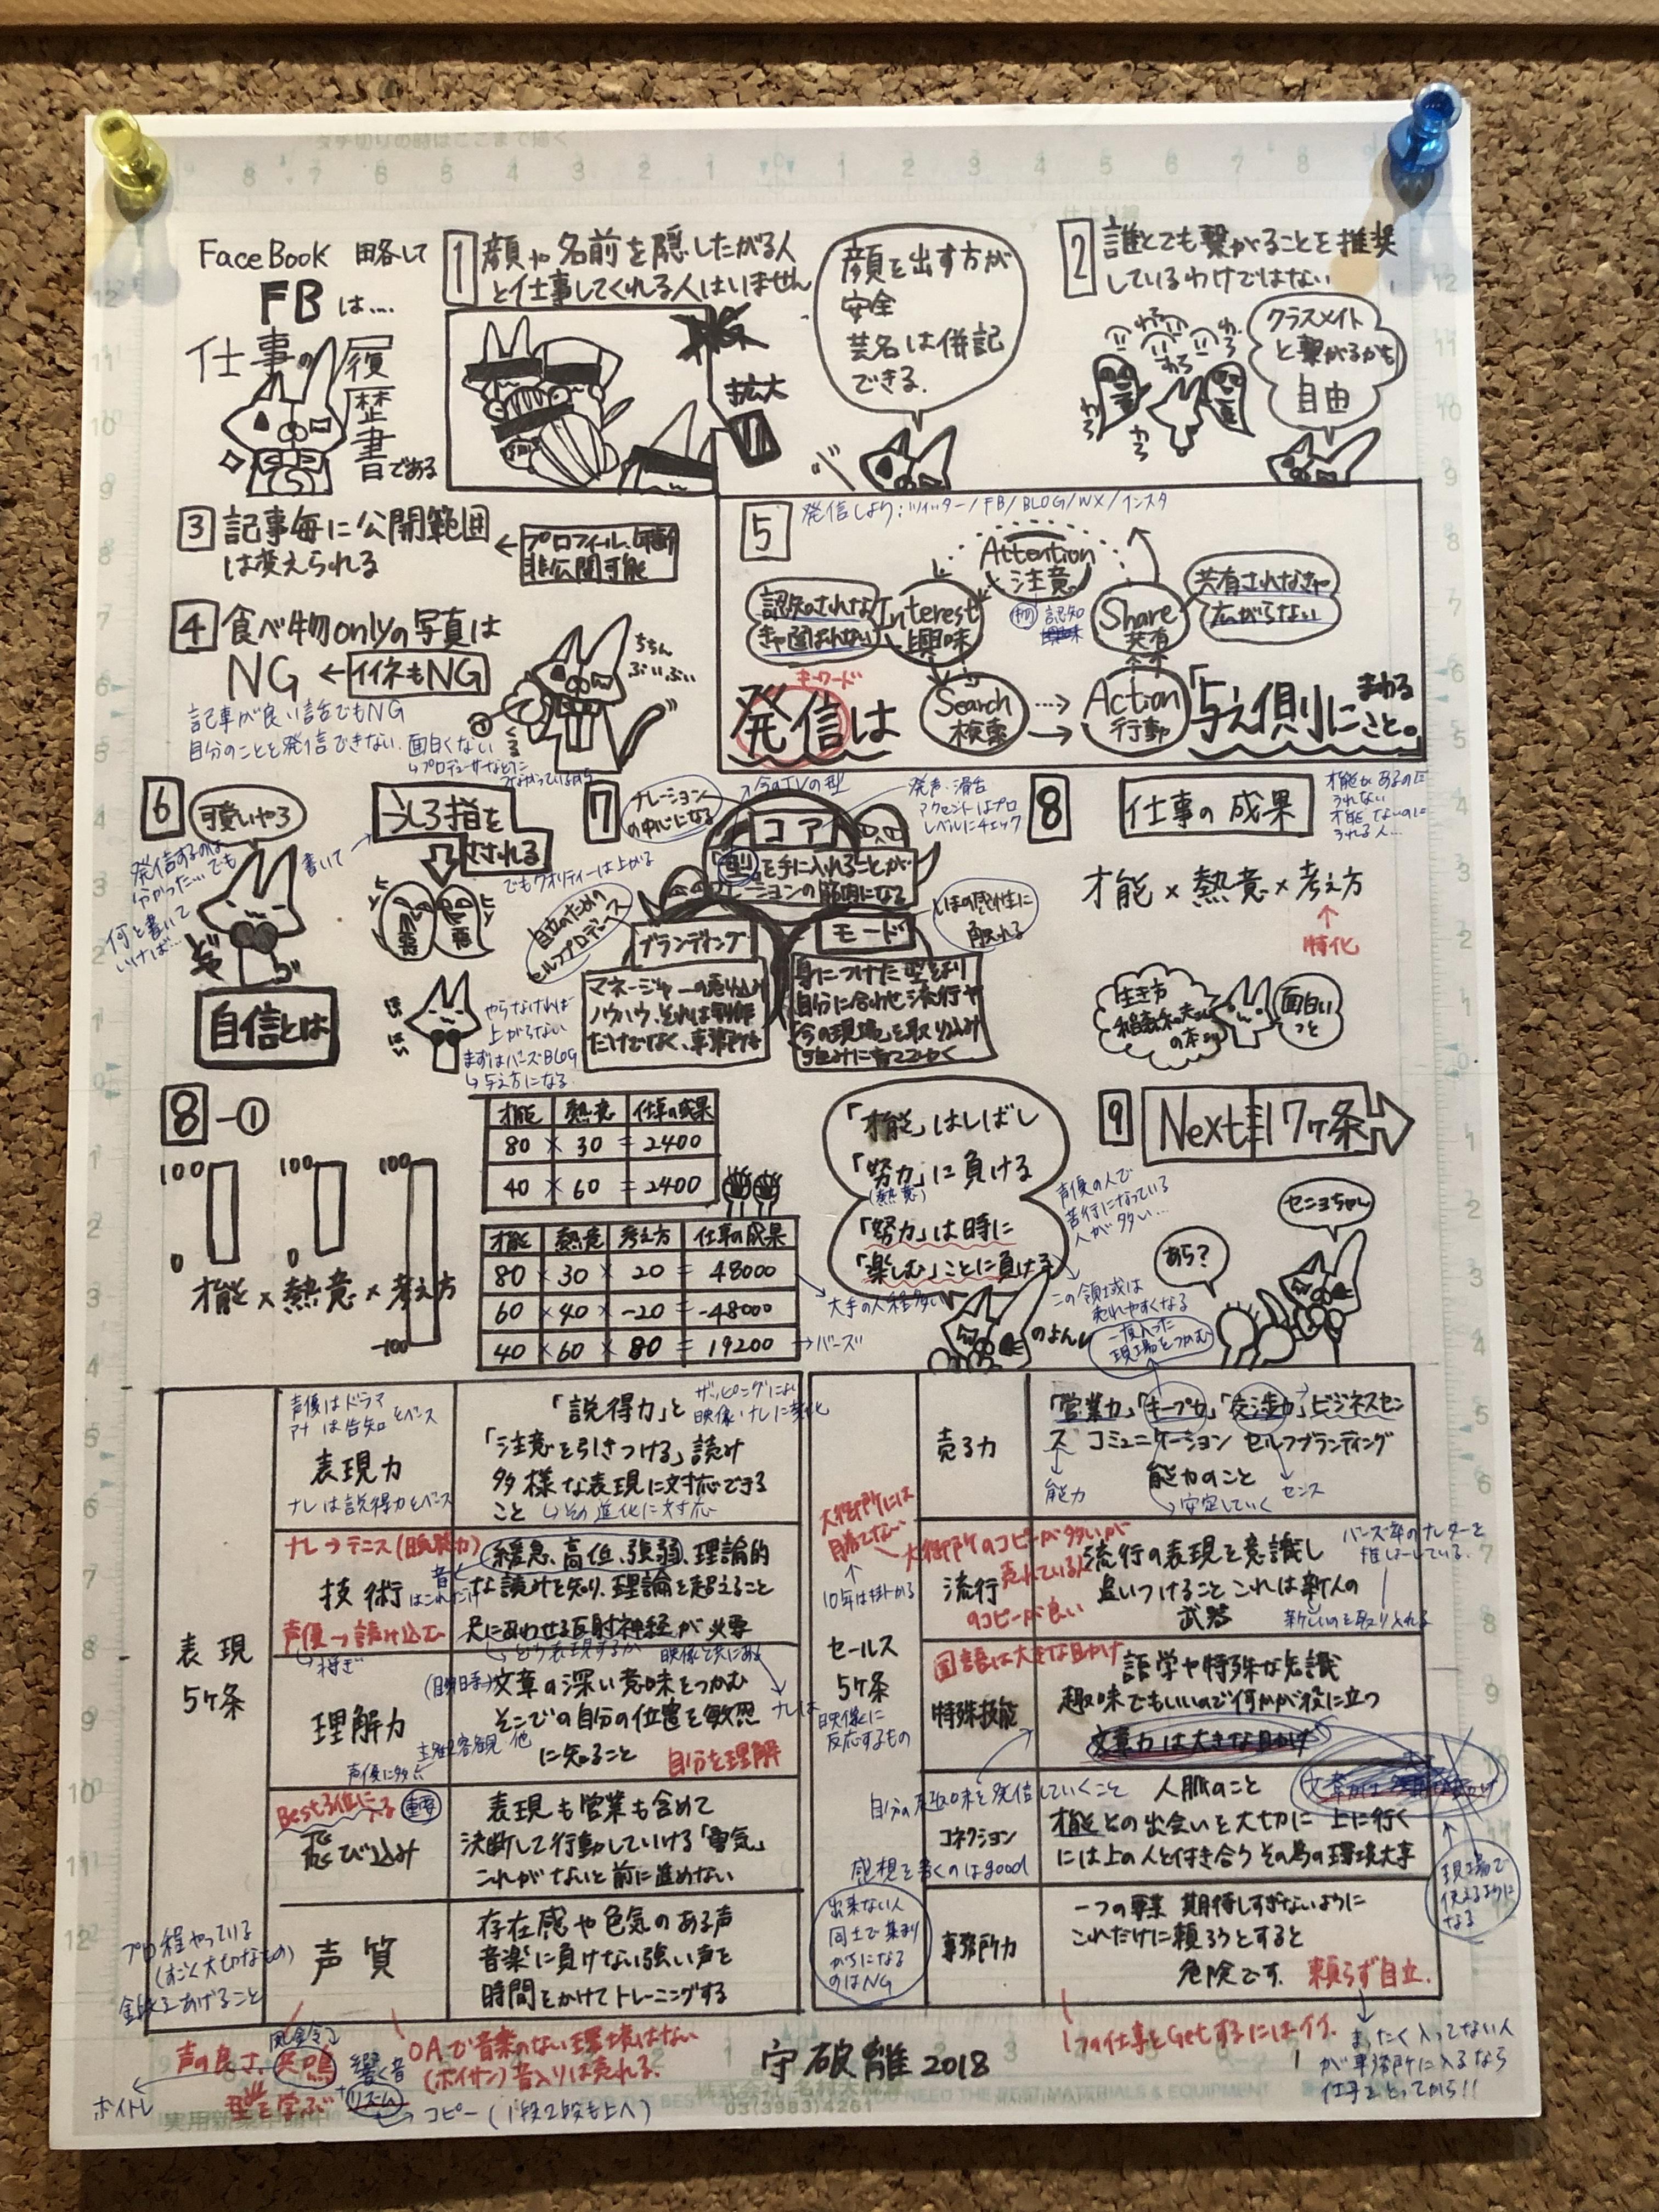 タチ切りの時はここまで描く
FaceBook 略して
FBは…
仕事の履歴書である
1 顔や名前を隠したがる人
と仕事してくれる人はいません
拡大
顔を出す方が
安全
芸名は併記
できる.
2 誰とでも繋がることを推奨
しているわけではない
クラスメイト
と繋がるかも
自由
3 記事毎に公開範囲
は変えられる
プロフィール、年齢
非公開可能
4 食べ物onlyの写真は
NG ← イイネもNG
ちちん
ぷいぷい
記事が良い話でもNG
自分のことを発信できない. 面白くない
5 発信しよう:ツイッター/FB/BLOG/WX/インスタ
Attention
注意
認知されな
きゃ選ばれない
Interest
興味
認知
Share
共有
共有されなきゃ
広がらない
Search
検索
Action
行動
キーワード
発信は「与え側」にまわること。
6 可愛いやろ
発信するのは
分かった…でも
何を書いて
いけば…
書いて
うしろ指を
さされる
でもクオリティーは上がる
自信とは
はいはい
やらなければ
上がらない
まずはバーズBLOG
↳与え方になる
7 ナレーション
の中心になる
今のTVの型
コア
「型」を手に入れることが
ナレーションの筋肉になる
発声・滑舌
アクセントはプロ
レベルにチェック
自立のための
セルフプロデュース
ブランディング
マネージャーの売り込み
ノウハウ、それは制作
だけでなく、事務所も
モード
いまの感性に
触れる
身につけた型より
自分に合わせ流行や
今の現場を取り込み
強みに育てていく
8 仕事の成果
才能があるのに
うれない
才能でないのに
うれる人…
才能×熱意×考え方
↑
特化
生き方
稲盛和夫さん
の本より
面白い
っと
8-①
100 100 100
0 0
-100
才能×熱意×考え方
才能 熱意 仕事の成果
80 × 30 = 2400
40 × 60 = 2400
才能 熱意 考え方 仕事の成果
80 × 30 × 20 = 48000
60 × 40 × -20 = -48000
40 × 60 × 80 = 19200 →バーズ
大手の人程多い
「才能」はしばし
「努力」に負ける
(熱意)
「努力」は時に
「楽しむ」ことに負ける
のよん
声優の人で
苦行になっている
人が多い…
この領域は
売れやすくなる
一度入った
現場をつかむ
9 Next 17ヶ条
セニョちゃん
あら?
表現
5ヶ条
声優はドラマ
アナは告知をベース
表現力
ナレは説得力をベース
「説得力」と
「注意を引きつける」読み
多様な表現に対応できる
こと ↳その進化に対応
ザッピングにより
映像・ナレに変化
ナレ→テニス(瞬発力)
技術
声優→読み込む
↳将ぎ
緩急、高低、強弱、理論的
な読みを知り、理論を超えること
尺にあわせる反射神経が必要
↳どう表現するか
映像と共にある
理解力
文章の深い意味をつかむ
そこでの自分の位置を敏感
に知ること 自分を理解
主観 客観 他
声優に多い
Best3位に入る 重要
飛び込み
表現も営業も含めて
決断して行動していける「勇気」
これがないと前に進めない
声質
存在感や色気のある声
音楽に負けない強い声を
時間をかけてトレーニングする
プロ程やっている
(すごく大切なもの)
セールス
5ヶ条
大御所には
勝てない
10年は掛かる
ナレは
映像に
反応するもの
売る力
「営業力」「キープ力」「交渉力」ビジネスセン
ス コミュニケーション セルフブランディング
能力のこと
能力
↳安定していく
センス
大御所のコピーが多いが
売れている人
のコピーが良い
流行
流行の表現を意識し
追いつけること これは新人の
武器
バーズ卒のナレーターを
推しーしている.
新しいのを取り入れる
国語は大きな目かけ
特殊技能
語学や特殊な知識
趣味でもいいので何かが役に立つ
文章力は大きな目かけ
自分の趣味を発信していくこと
コネクション
人脈のこと
才能との出会いを大切に 上に行く
には上の人と付き合う その為の環境大事
感想を書くのはgood
現場で
使えるように
なる
出来ない人
同士で集まり
がちになる
のはNG
事務所力
一つの事業 期待しすぎないように
これだけに頼ろうとすると
危険です. 頼らず自立.
1つの仕事をGetするにはイイ.
まったく入ってない人
が事務所に入るなら
仕事をとってから!!
声の良さ、共鳴
風鈴
響く音
リズム
ボイトレ
型を学ぶ
コピー(1段2段も上へ)
OAで音楽のない環境はない
(ボイサン)音入りは売れる.
守破離2018
03(3983)4261